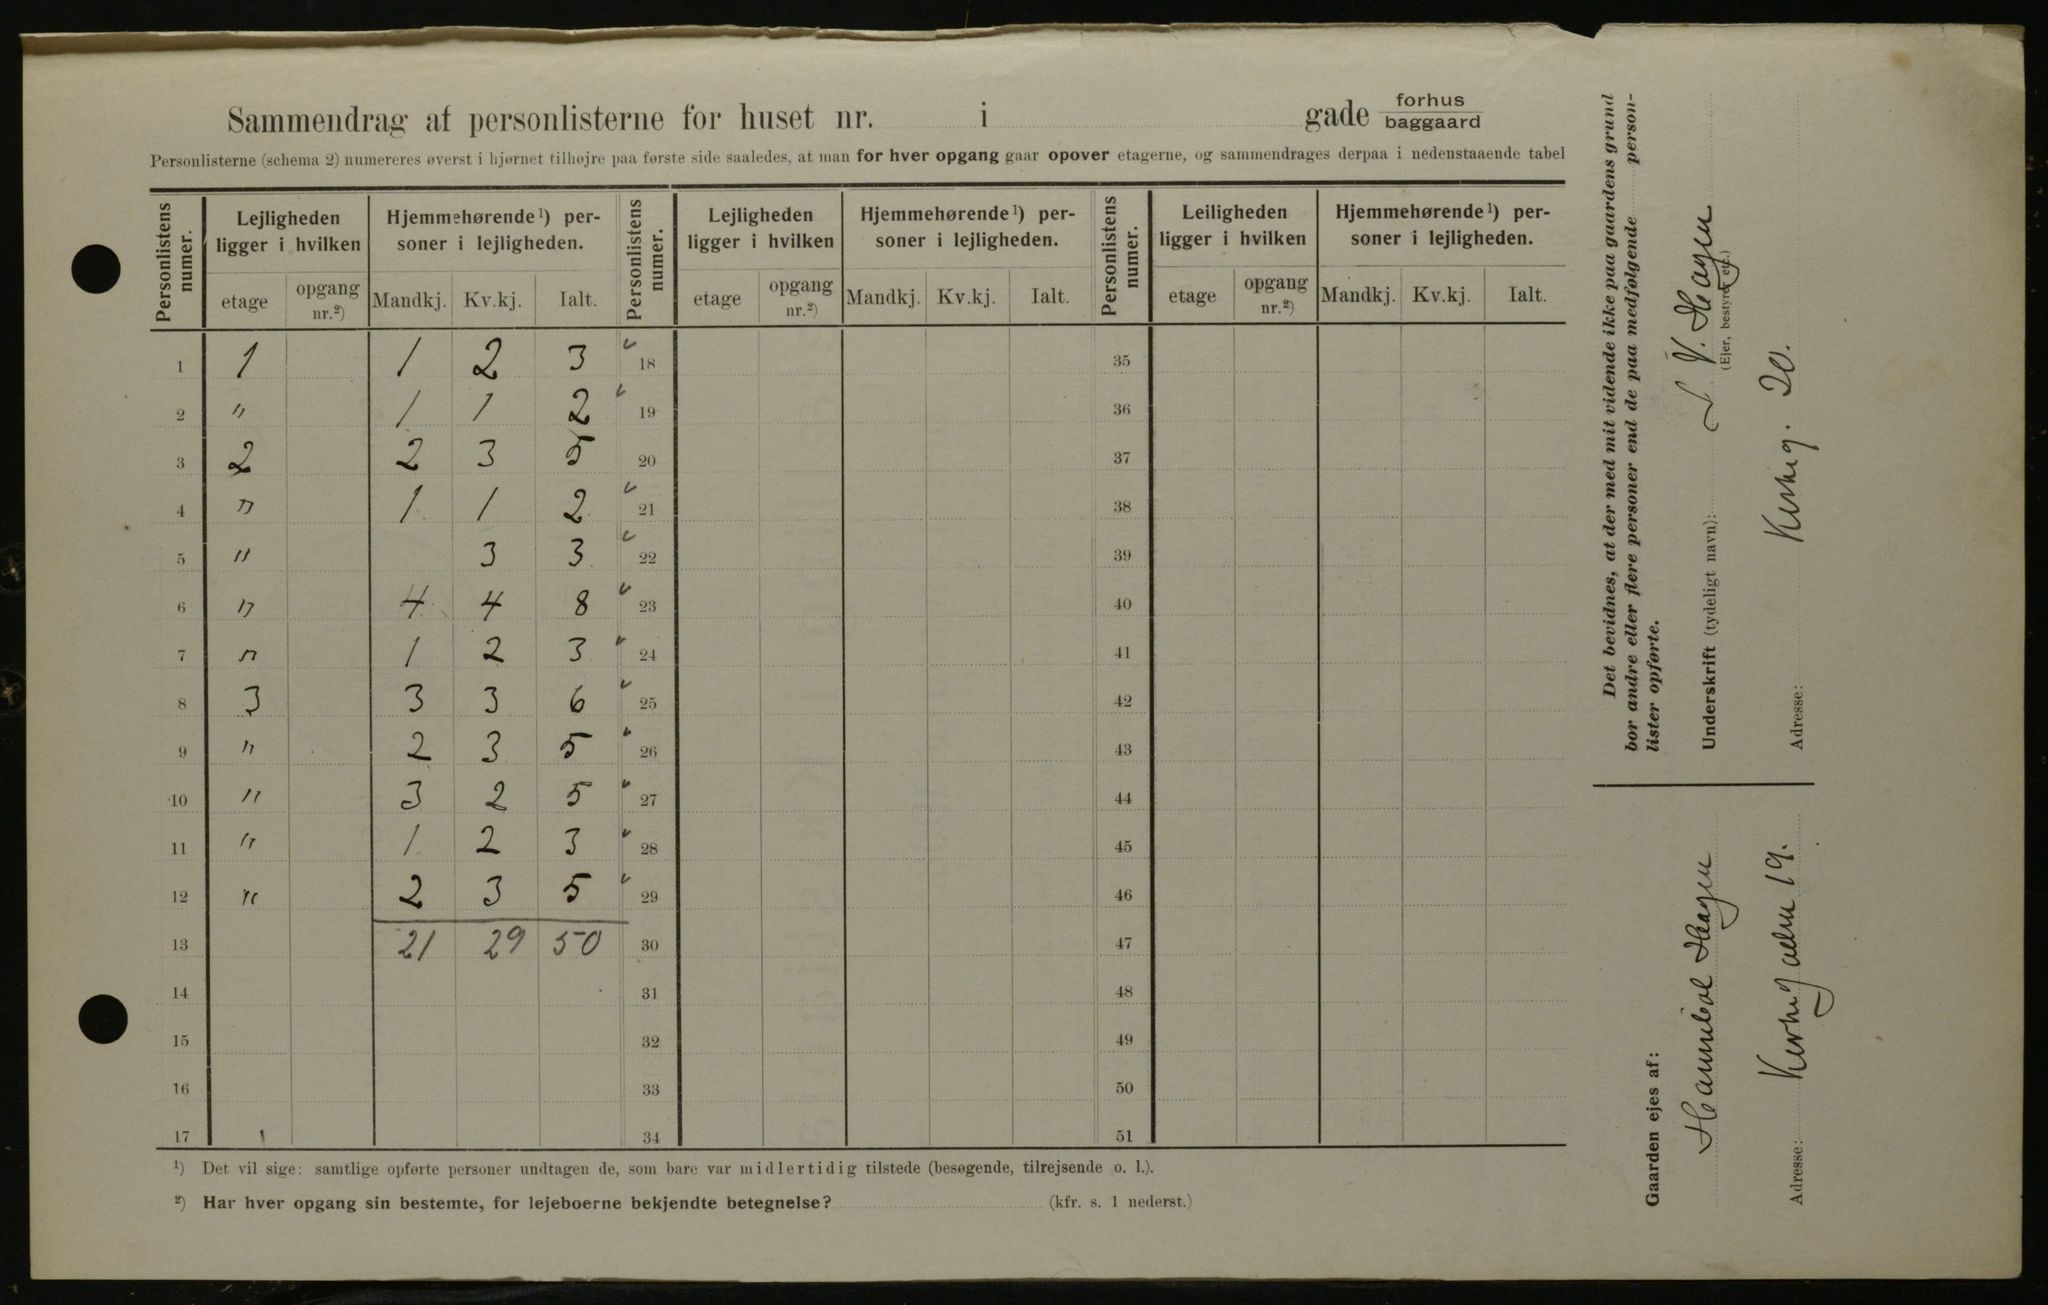 Sammendrag af personlisterne for huset nr. i gade forhus
baggaard
Personlisterne (schema 2) numereres øverst i hjørnet tilhøjre paa første side saaledes, at man for hver opgang gaar opover etagerne, og sammendrages derpaa i nedenstaaende tabel
Personlistens numer. Lejligheden ligger i hvilken Hjemmehørende ¹) personer i lejligheden. Personlistens numer. Lejligheden ligger i hvilken Hjemmehørende ¹) personer i lejligheden. Personlistens numer. Leiligheden ligger i hvilken Hjemmehørende ¹) personer i lejligheden.
etage opgang nr.²) Mandkj. Kv.kj. Ialt. etage opgang nr.²) Mandkj. Kv.kj. Ialt. etage opgang nr.²) Mandkj. Kv.kj. Ialt.
1 1 1 2 3 18 35
2 " 1 1 2 19 36
3 2 2 3 5 20 37
4 " 1 1 2 21 38
5 " 3 3 22 39
6 " 4 4 8 23 40
7 " 1 2 3 24 41
8 3 3 3 6 25 42
9 " 2 3 5 26 43
10 " 3 2 5 27 44
11 " 1 2 3 28 45
12 " 2 3 5 29 46
13 21 29 50 30 47
14 31 48
15 32 49
16 33 50
17 34 51
¹) Det vil sige: samtlige opførte personer undtagen de, som bare var midlertidig tilstede (besøgende, tilrejsende o. l.).
²) Har hver opgang sin bestemte, for lejeboerne bekjendte betegnelse? (kfr. s. 1 nederst.)
Det bevidnes, at der med mit vidende ikke paa gaardens grund
bor andre eller flere personer end de paa medfølgende person-
lister opførte.
Underskrift (tydeligt navn): V. Hagen
(Ejer, bestyrer etc.)
Adresse: Kirkeg. 20.
Gaarden ejes af:
Hannibal Hagen
Adresse: Kirkegaden 19.